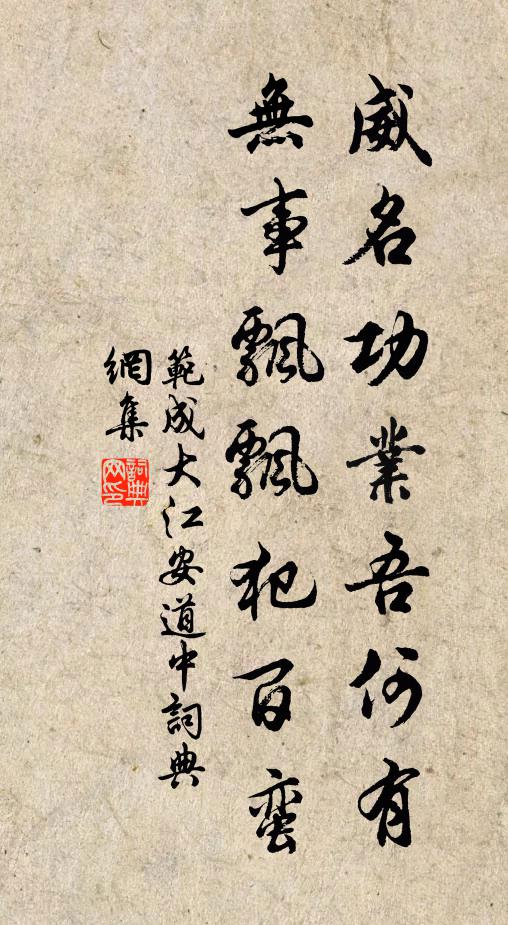 威名功業吾何有
無事飄飄犯百蛮
範成大江安道中詞典
網集
詞典
网印